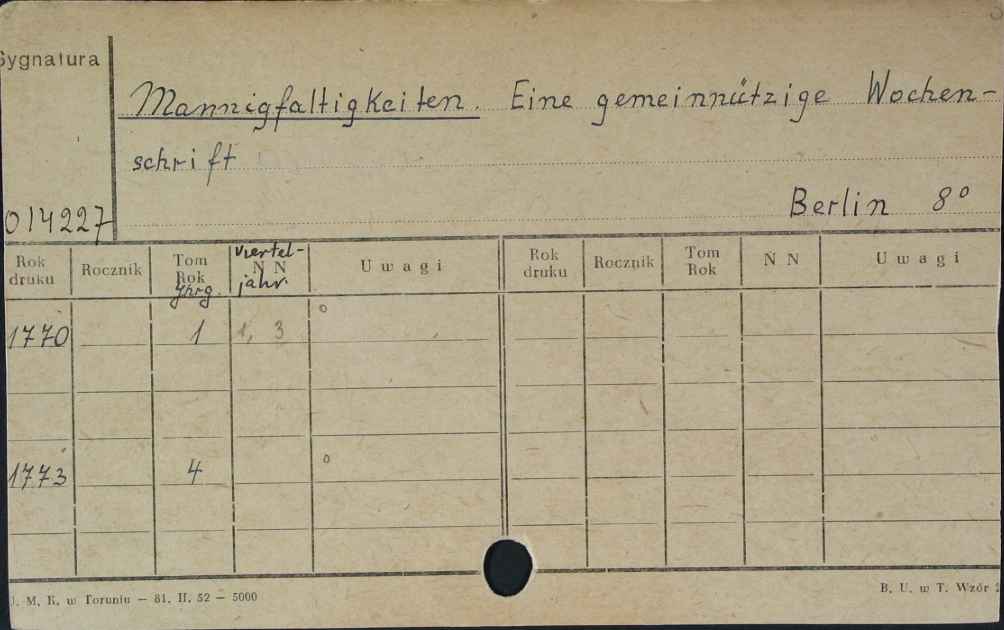 Sygnatura
Mannigfaltigkeiten. Eine gemeinnützige Wochen-
schrift
Berlin 8°
014227
Rok druku Rocznik Tom Rok Jhrg. Viertel- N N jahr. Uwagi Rok druku Rocznik Tom Rok N N Uwagi
1770 1 1, 3 °
1773 4 °
U. M. K. w Toruniu — 81. II. 52 — 5000
B. U. w T. Wzór